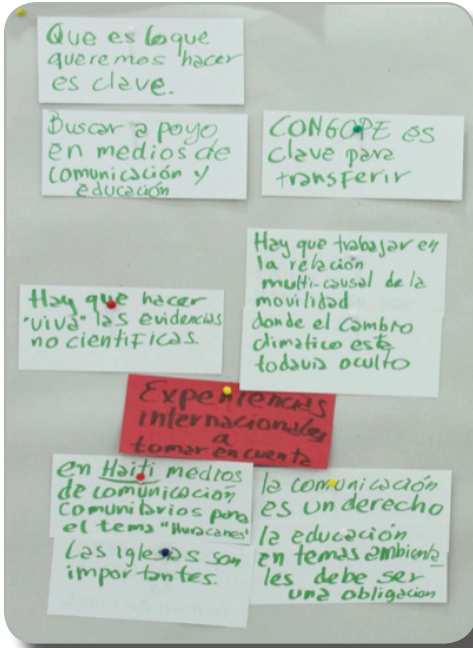 Que es lo que
queremos hacer
es clave.
Buscar apoyo
en medios de
comunicación y
educación
CONGOPE es
clave para
transferir
Hay que trabajar en
la relación
multi-causal de la
movilidad
donde el cambio
climatico este
todavia oculto
Hay que hacer
"viva" las evidencias
no cientificas.
Experiencias
internacionales
a
tomar en cuenta
en Haiti medios
de comunicación
comunitarios para
el tema "Huracanes"
Las iglesias son
importantes.
la comunicación
es un derecho
la educación
en temas ambienta
les debe ser
una obligacion